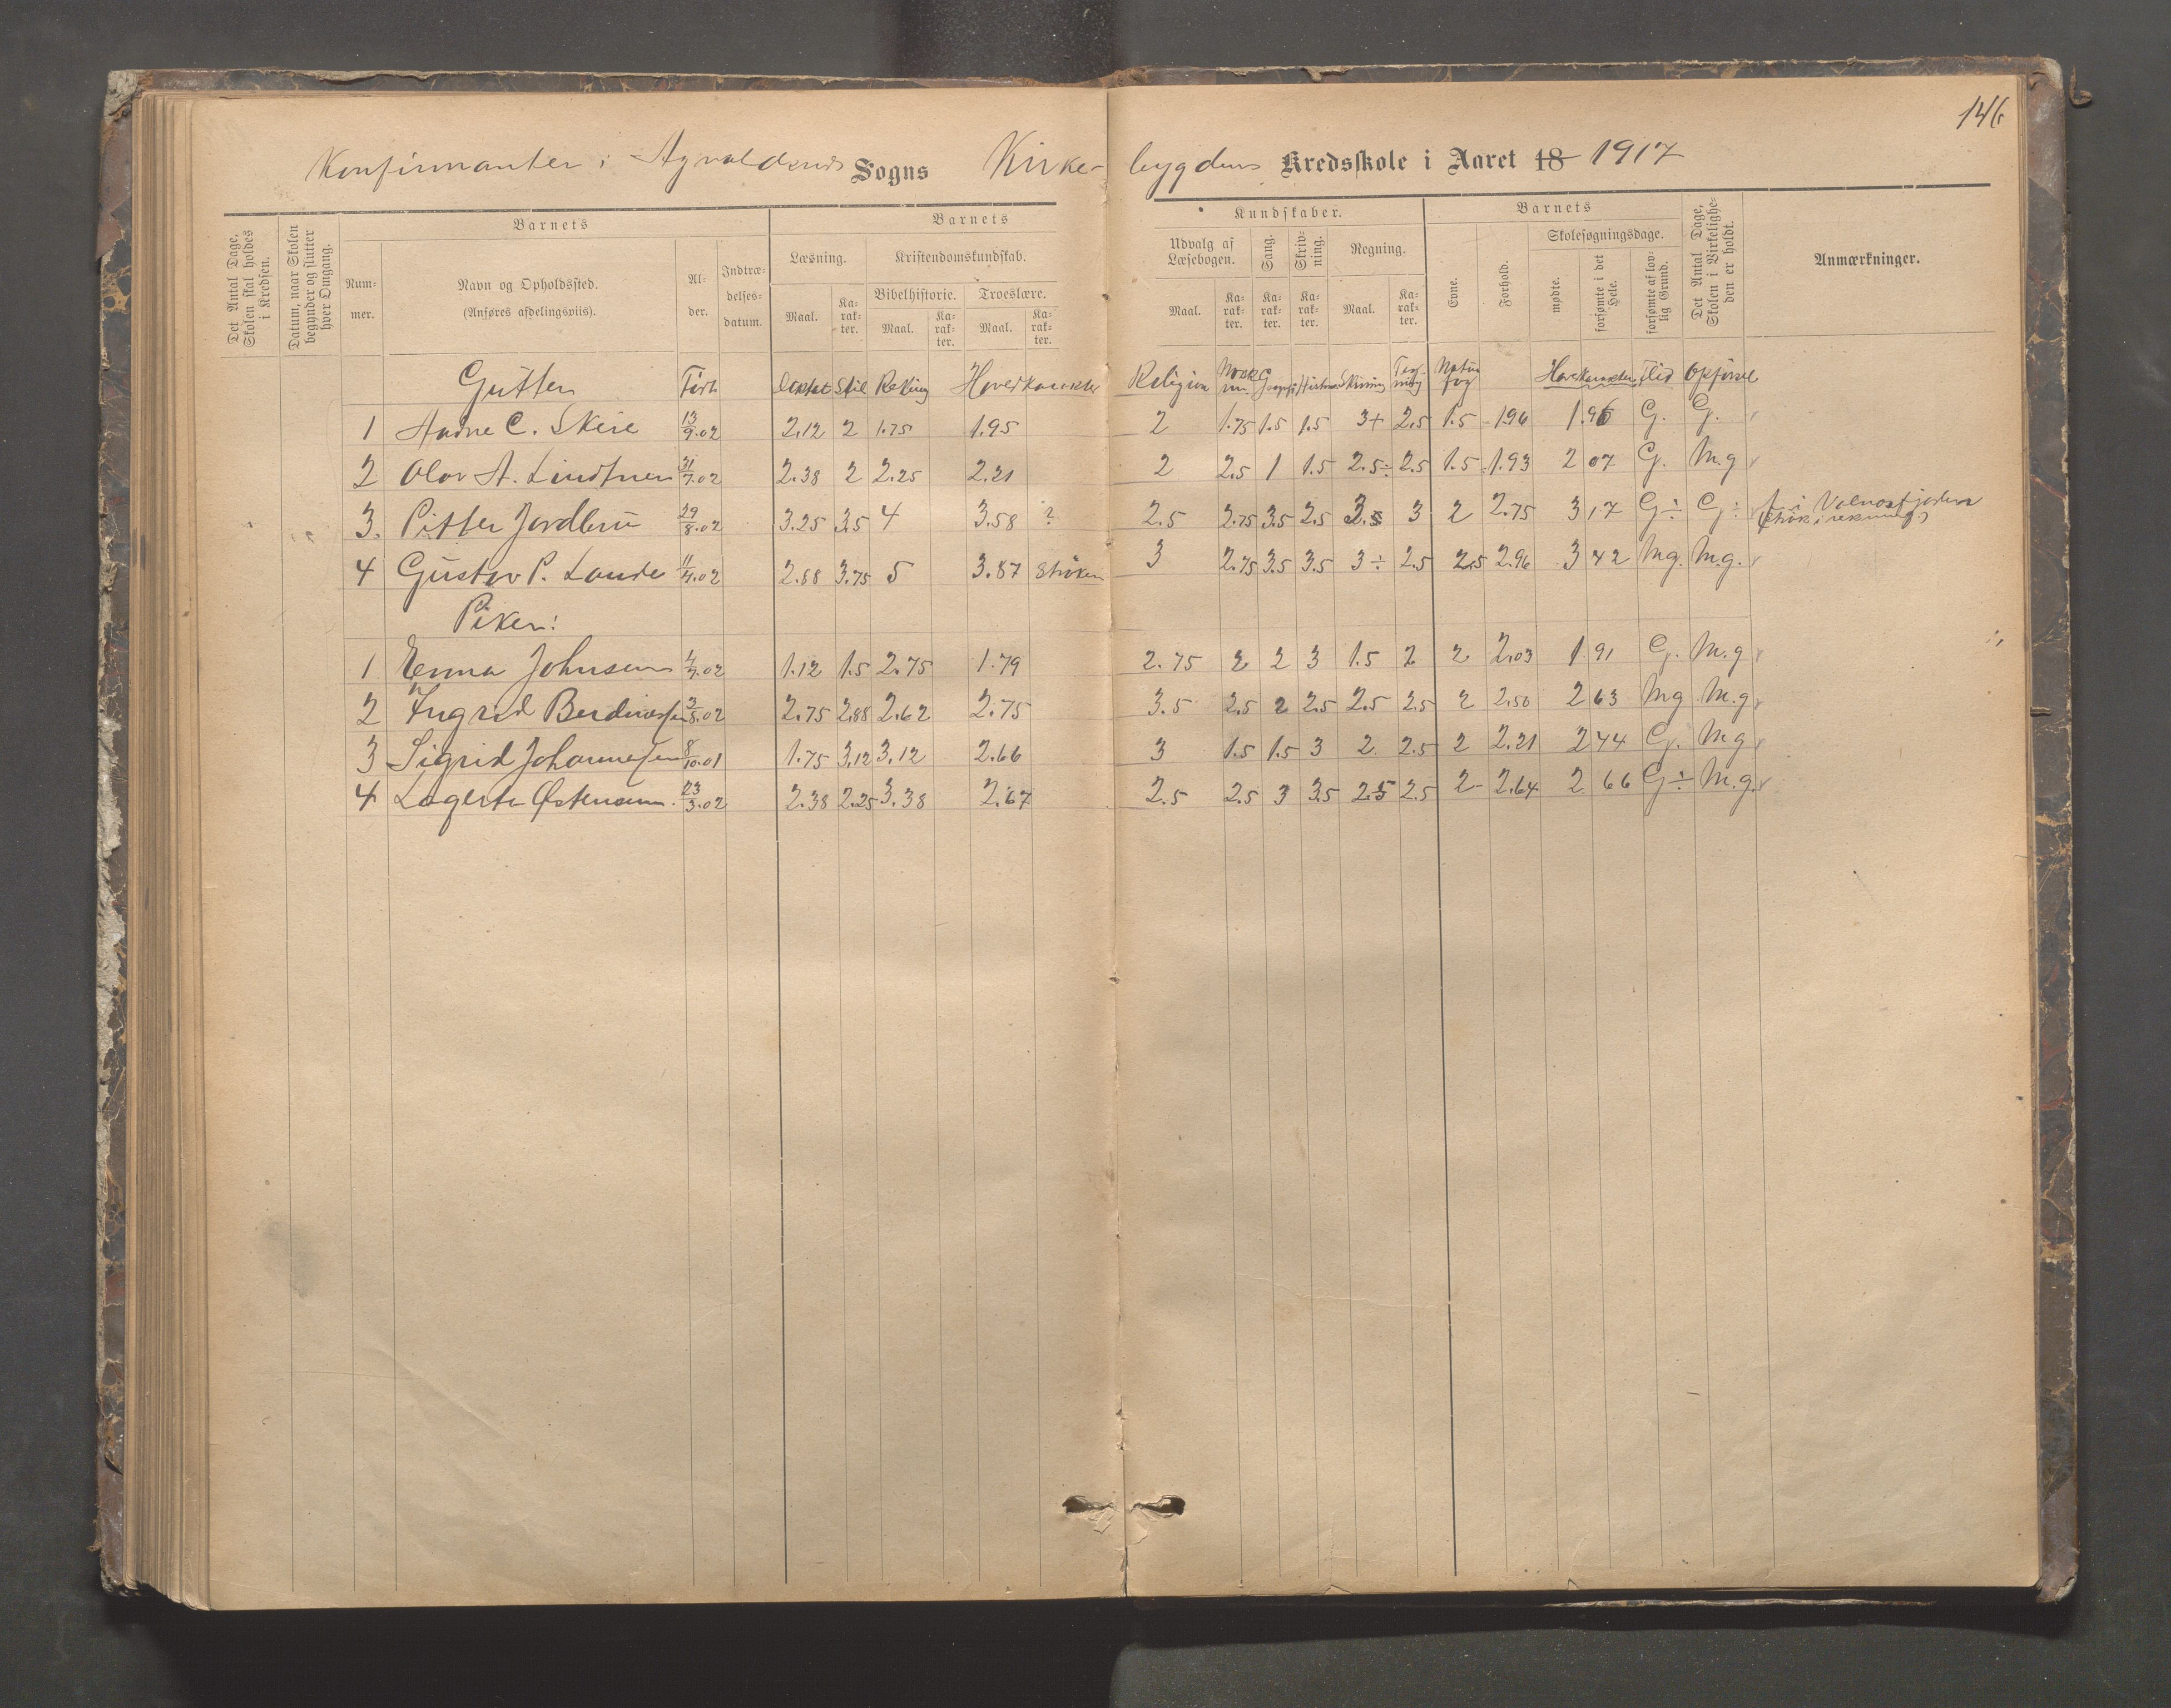 146
Konfirmanter i Sogns Kirke- bygdens Kredsskole i Aaret 18 1917
Det Antal Dage, Skolen skal holdes i Kredsen.
Datum, naar Skolen begynder og slutter hver Omgang.
Barnets
Nummer.
Navn og Opholdssted.
(Anføres afdelingsviis).
Alder.
Indtrædelsesdatum.
Barnets
Læsning.
Maal.
Karakter.
Kristendomskundskab.
Bibelhistorie.
Maal.
Karakter.
Troeslære.
Maal.
Karakter.
Kundskaber.
Udvalg af Læsebogen.
Maal.
Karakter.
Sang.
Karakter.
Skrivning.
Karakter.
Regning.
Maal.
Karakter.
Barnets
Evne.
Forhold.
Skolesøgningsdage.
mødte.
forsømte i det Hele.
forsømte af lovlig Grund.
Det Antal Dage, Skolen i Virkeligheden er holdt.
Anmærkninger.
Gutter Født Stil Rekning Hovedkarakter Religion Norsk Skrivning Tegning Naturfag Hovedkarakter Flid Opførsel
1 C. Skeie 13/9.02 2.12 2 1.75 1.95 2 1.75 1.5 1.5 3+ 2.5 1.5 1.96 1.96 G. G.
2 Olav A. 31/7.02 2.38 2 2.25 2.21 2 2.5 1 1.5 2.5÷ 2.5 1.5 1.93 2 07 G. M.g
3. Pitter Jordbru 29/8.02 3.25 3.5 4 3.58 ? 2.5 2.75 3.5 2.5 3.5 3 2 2.75 3 17 G÷ G÷ i
4 Gustav P. Lande 11/4.02 2.88 3.75 5 3.87 Strøken 3 2.75 3.5 3.5 3÷ 2.5 2.5 2.96 3 42 Mg. M.g.
Piker:
1 Emma Johnsen 4/7.02 1.12 1.5 2.75 1.79 2.75 2 2 3 1.5 2 2 2.03 1.91 G. M.g
2 Ingrid Berdinessen 3/8.02 2.75 2.88 2.62 2.75 3.5 2.5 2 2.5 2.5 2.5 2 2.50 2 63 Mg M.g
3 Sigrid Johannessen 8/10.01 1.75 3.12 3.12 2.66 3 1.5 1.5 3 2 2.5 2 2.21 2 44 G. M.g
4 Lagerta Østensen. 23/3.02 2.38 2.25 3.38 2.67 2.5 2.5 3 3.5 2.5 2.5 2 2.64 2 66 G÷ M.g.